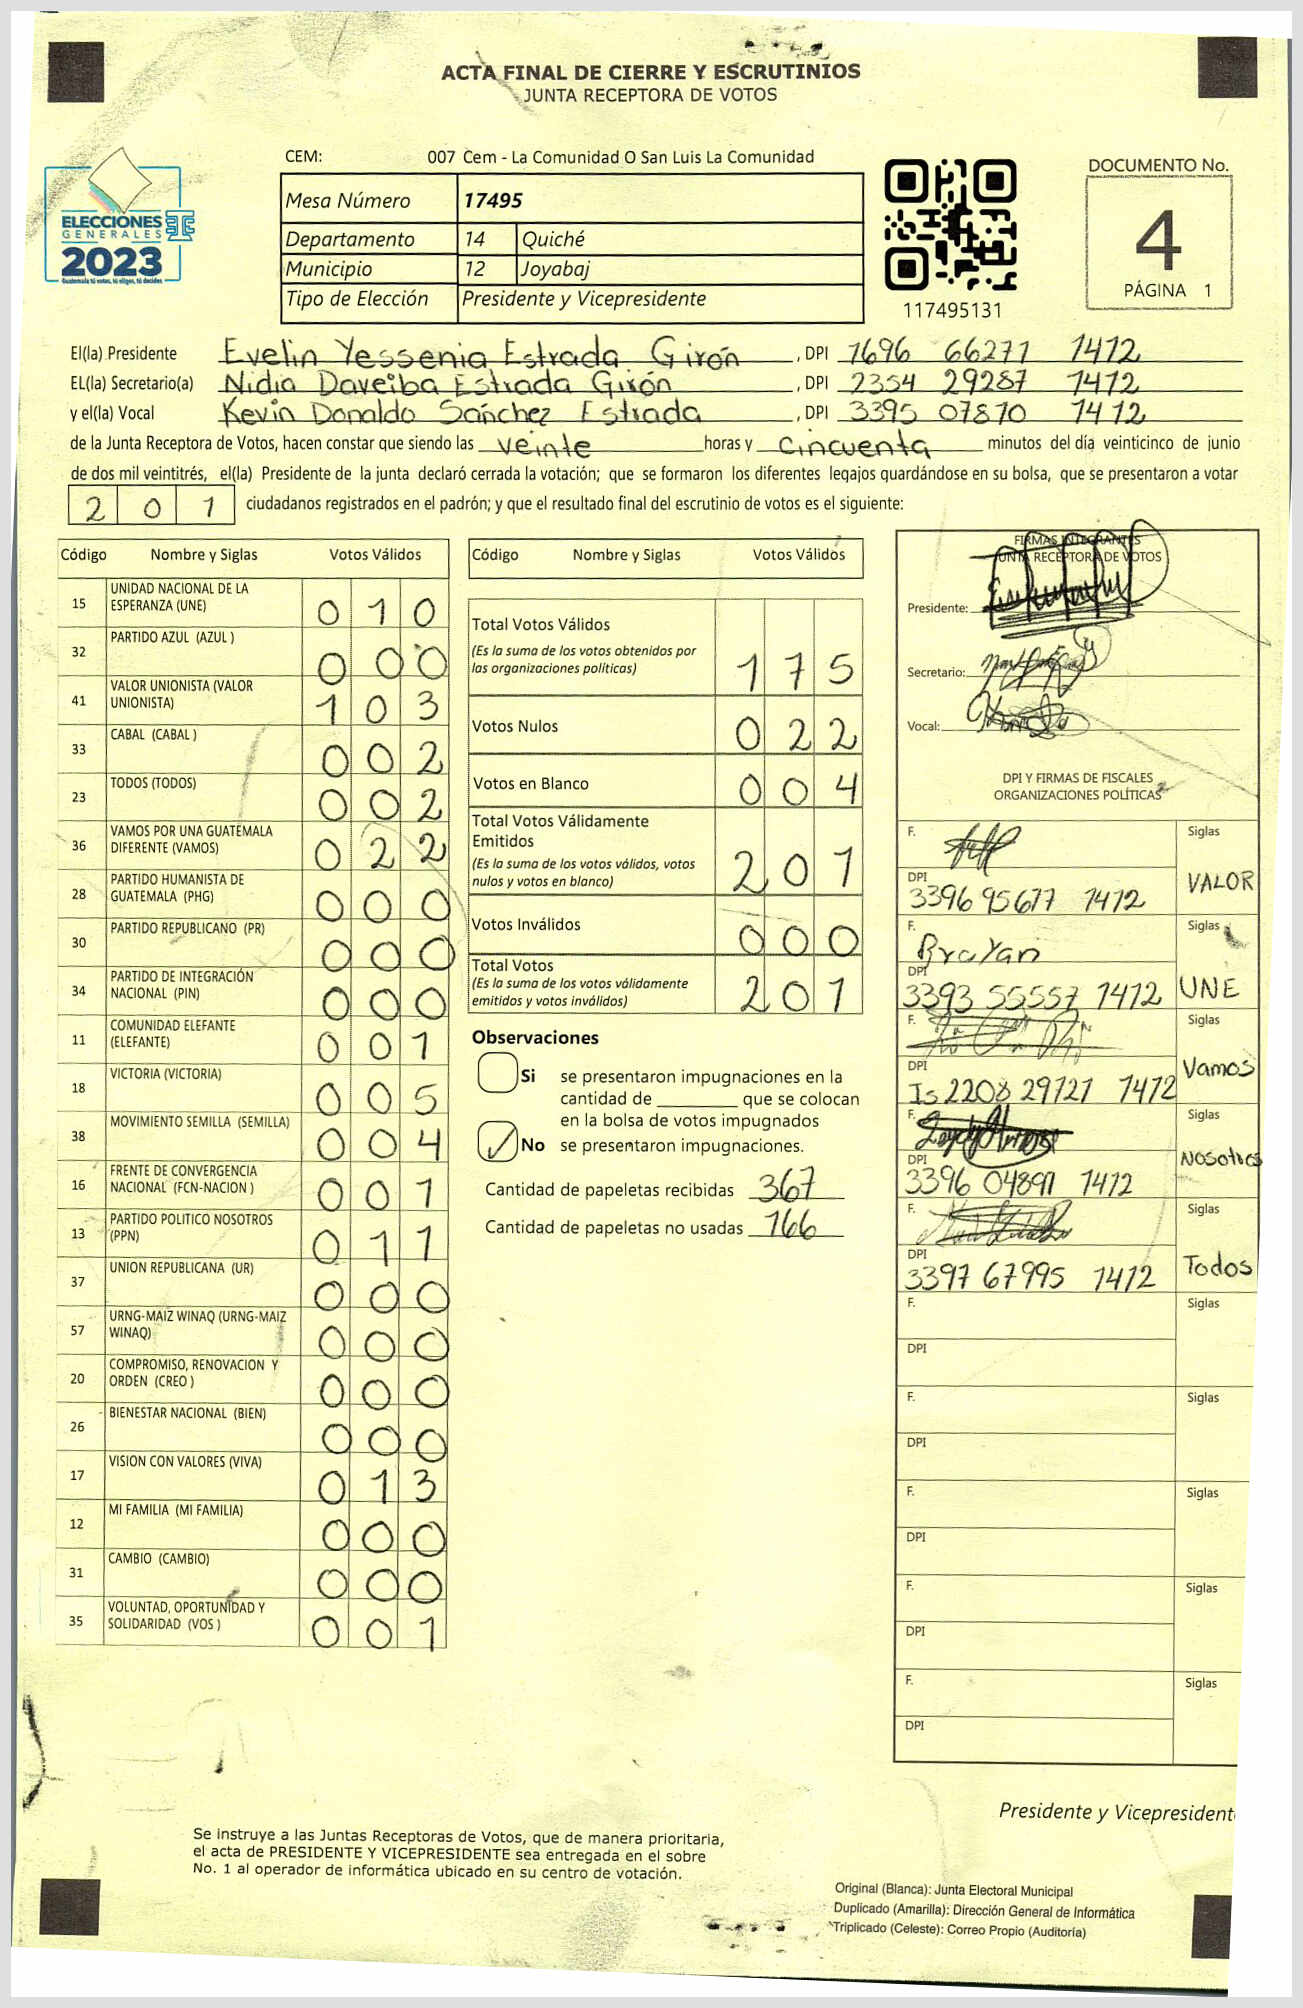 ACTA FINAL DE CIERRE Y ESCRUTINIOS
JUNTA RECEPTORA DE VOTOS
ELECCIONES
GENERALES
2023
Guatemala tú votas, tú eliges, tú decides
CEM: 007 Cem - La Comunidad O San Luis La Comunidad
Mesa Número 17495
Departamento 14 Quiché
Municipio 12 Joyabaj
Tipo de Elección Presidente y Vicepresidente
117495131
DOCUMENTO No.
4
PÁGINA 1
El(la) Presidente Evelin Yessenia Estrada Girón, DPI 1696 66271 1412
EL(la) Secretario(a) Nidia Daveiba Estrada Girón, DPI 2354 29287 1412
y el(la) Vocal Kevin Donaldo Sánchez Estrada, DPI 3395 07870 1412
de la Junta Receptora de Votos, hacen constar que siendo las veinte horas y cincuenta minutos del día veinticinco de junio
de dos mil veintitrés, el(la) Presidente de la junta declaró cerrada la votación; que se formaron los diferentes legajos quardándose en su bolsa, que se presentaron a votar
201 ciudadanos registrados en el padrón; y que el resultado final del escrutinio de votos es el siguiente:
Código Nombre y Siglas Votos Válidos
15 UNIDAD NACIONAL DE LA ESPERANZA (UNE) 010
32 PARTIDO AZUL (AZUL ) 000
41 VALOR UNIONISTA (VALOR UNIONISTA) 103
33 CABAL (CABAL ) 002
23 TODOS (TODOS) 002
36 VAMOS POR UNA GUATEMALA DIFERENTE (VAMOS) 022
28 PARTIDO HUMANISTA DE GUATEMALA (PHG) 000
30 PARTIDO REPUBLICANO (PR) 000
34 PARTIDO DE INTEGRACIÓN NACIONAL (PIN) 000
11 COMUNIDAD ELEFANTE (ELEFANTE) 001
18 VICTORIA (VICTORIA) 005
38 MOVIMIENTO SEMILLA (SEMILLA) 004
16 FRENTE DE CONVERGENCIA NACIONAL (FCN-NACION ) 001
13 PARTIDO POLITICO NOSOTROS (PPN) 011
37 UNION REPUBLICANA (UR) 000
57 URNG-MAIZ WINAQ (URNG-MAIZ WINAQ) 000
20 COMPROMISO, RENOVACION Y ORDEN (CREO ) 000
26 BIENESTAR NACIONAL (BIEN) 000
17 VISION CON VALORES (VIVA) 013
12 MI FAMILIA (MI FAMILIA) 000
31 CAMBIO (CAMBIO) 000
35 VOLUNTAD, OPORTUNIDAD Y SOLIDARIDAD (VOS ) 001
Código Nombre y Siglas Votos Válidos
Total Votos Válidos
(Es la suma de los votos obtenidos por
las organizaciones politicas) 175
Votos Nulos 022
Votos en Blanco 004
Total Votos Válidamente
Emitidos
(Es la suma de los votos válidos, votos
nulos y votos en blanco) 201
Votos Inválidos 000
Total Votos
(Es la suma de los votos válidamente
emitidos y votos inválidos) 201
Observaciones
Si se presentaron impugnaciones en la
cantidad de ________ que se colocan
en la bolsa de votos impugnados
✓ No se presentaron impugnaciones.
Cantidad de papeletas recibidas 367
Cantidad de papeletas no usadas 166
FIRMAS INTEGRANTES
JUNTA RECEPTORA DE VOTOS
Presidente:
Secretario:
Vocal:
DPI Y FIRMAS DE FISCALES
ORGANIZACIONES POLÍTICAS
F. Siglas
DPI 3396 95677 1412 VALOR
F. Brayan Siglas
DPI 3393 55557 1412 UNE
F. Siglas
DPI Is 2208 29721 1412 Vamos
F. Siglas
DPI 3396 04897 1412 Nosotros
F. Siglas
DPI 3397 67995 1412 Todos
F. Siglas
DPI
F. Siglas
DPI
F. Siglas
DPI
F. Siglas
DPI
F. Siglas
DPI
Presidente y Vicepresident
Se instruye a las Juntas Receptoras de Votos, que de manera prioritaria,
el acta de PRESIDENTE Y VICEPRESIDENTE sea entregada en el sobre
No. 1 al operador de informática ubicado en su centro de votación.
Original (Blanca): Junta Electoral Municipal
Duplicado (Amarilla): Dirección General de Informática
Triplicado (Celeste): Correo Propio (Auditoría)